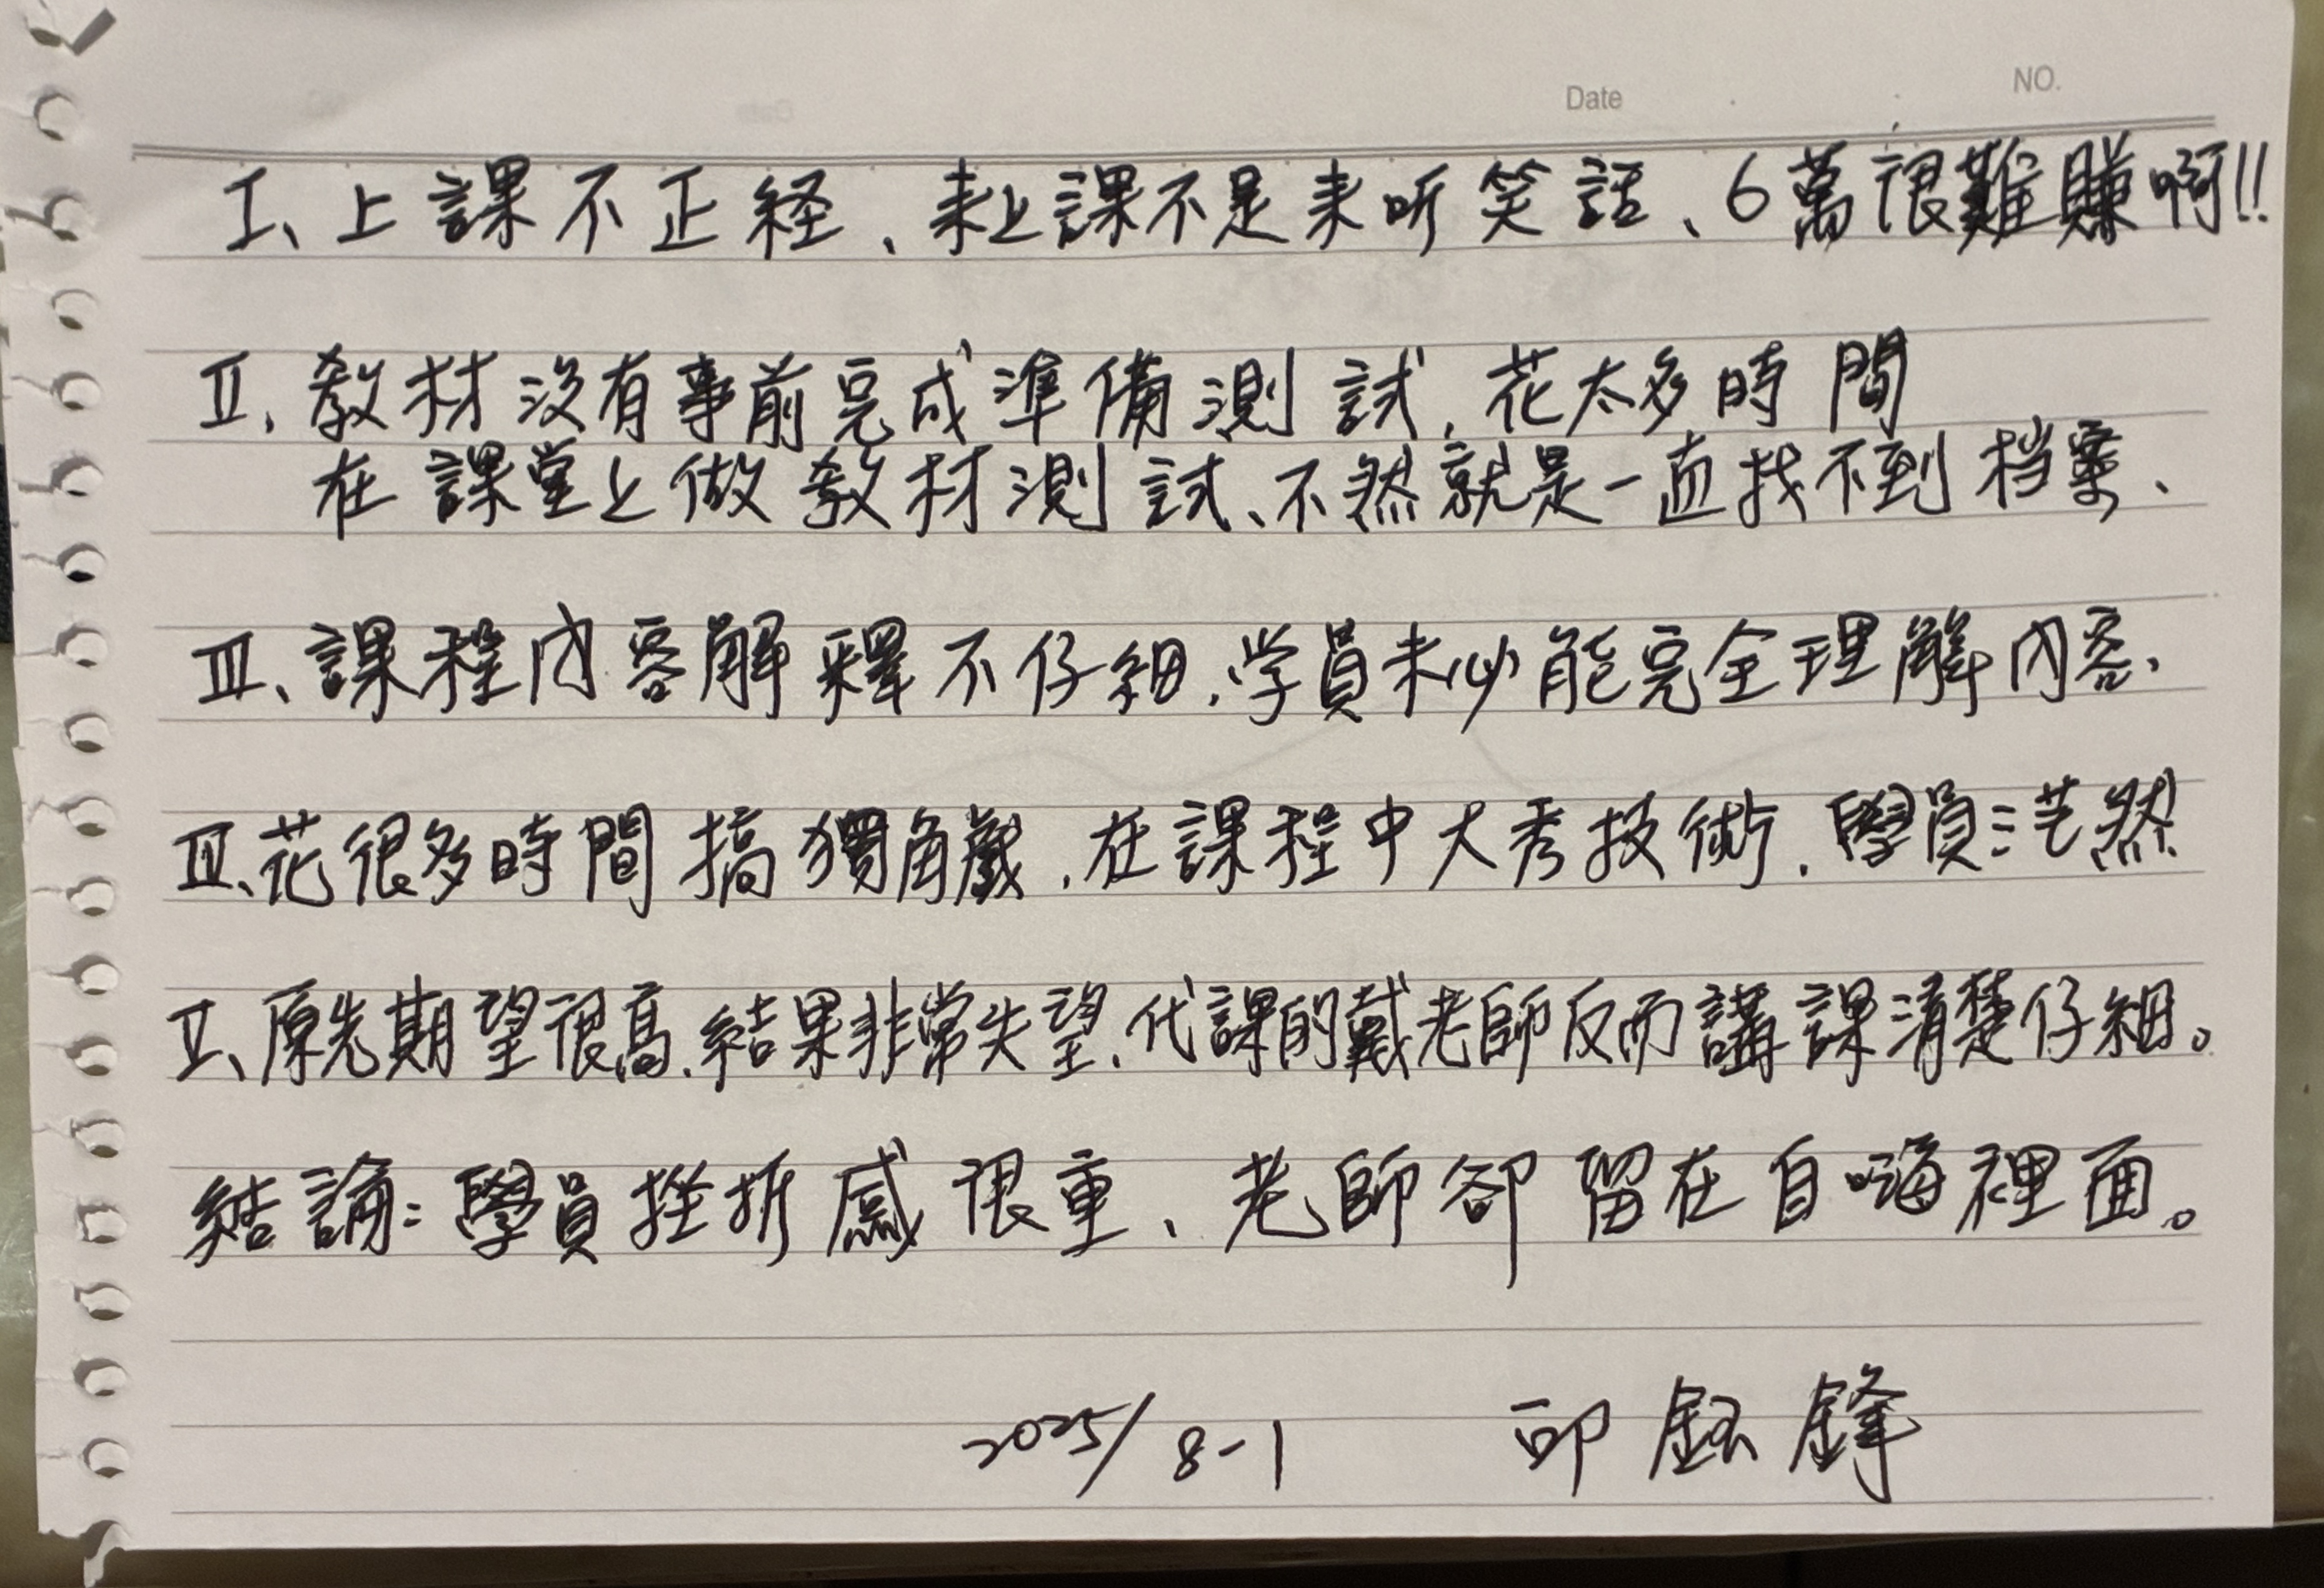 Date NO.
I、上課不正経、来上課不是来听笑話、6萬很難賺啊!!
II、教材没有事前完成準備測試，花太多時間
在課堂上做教材測試、不然就是一直找不到档案、
III、課程内容解釋不仔細，学員未必能完全理解内容、
IIII、花很多時間搞獨角戲，在課程中大秀技術，學員茫然
V、原先期望很高，結果非常失望、代課的戴老師反而講課清楚仔細。
結論：學員挫折感很重、老師卻留在自嗨裡面。
2025/8-1 邱鈺鋒